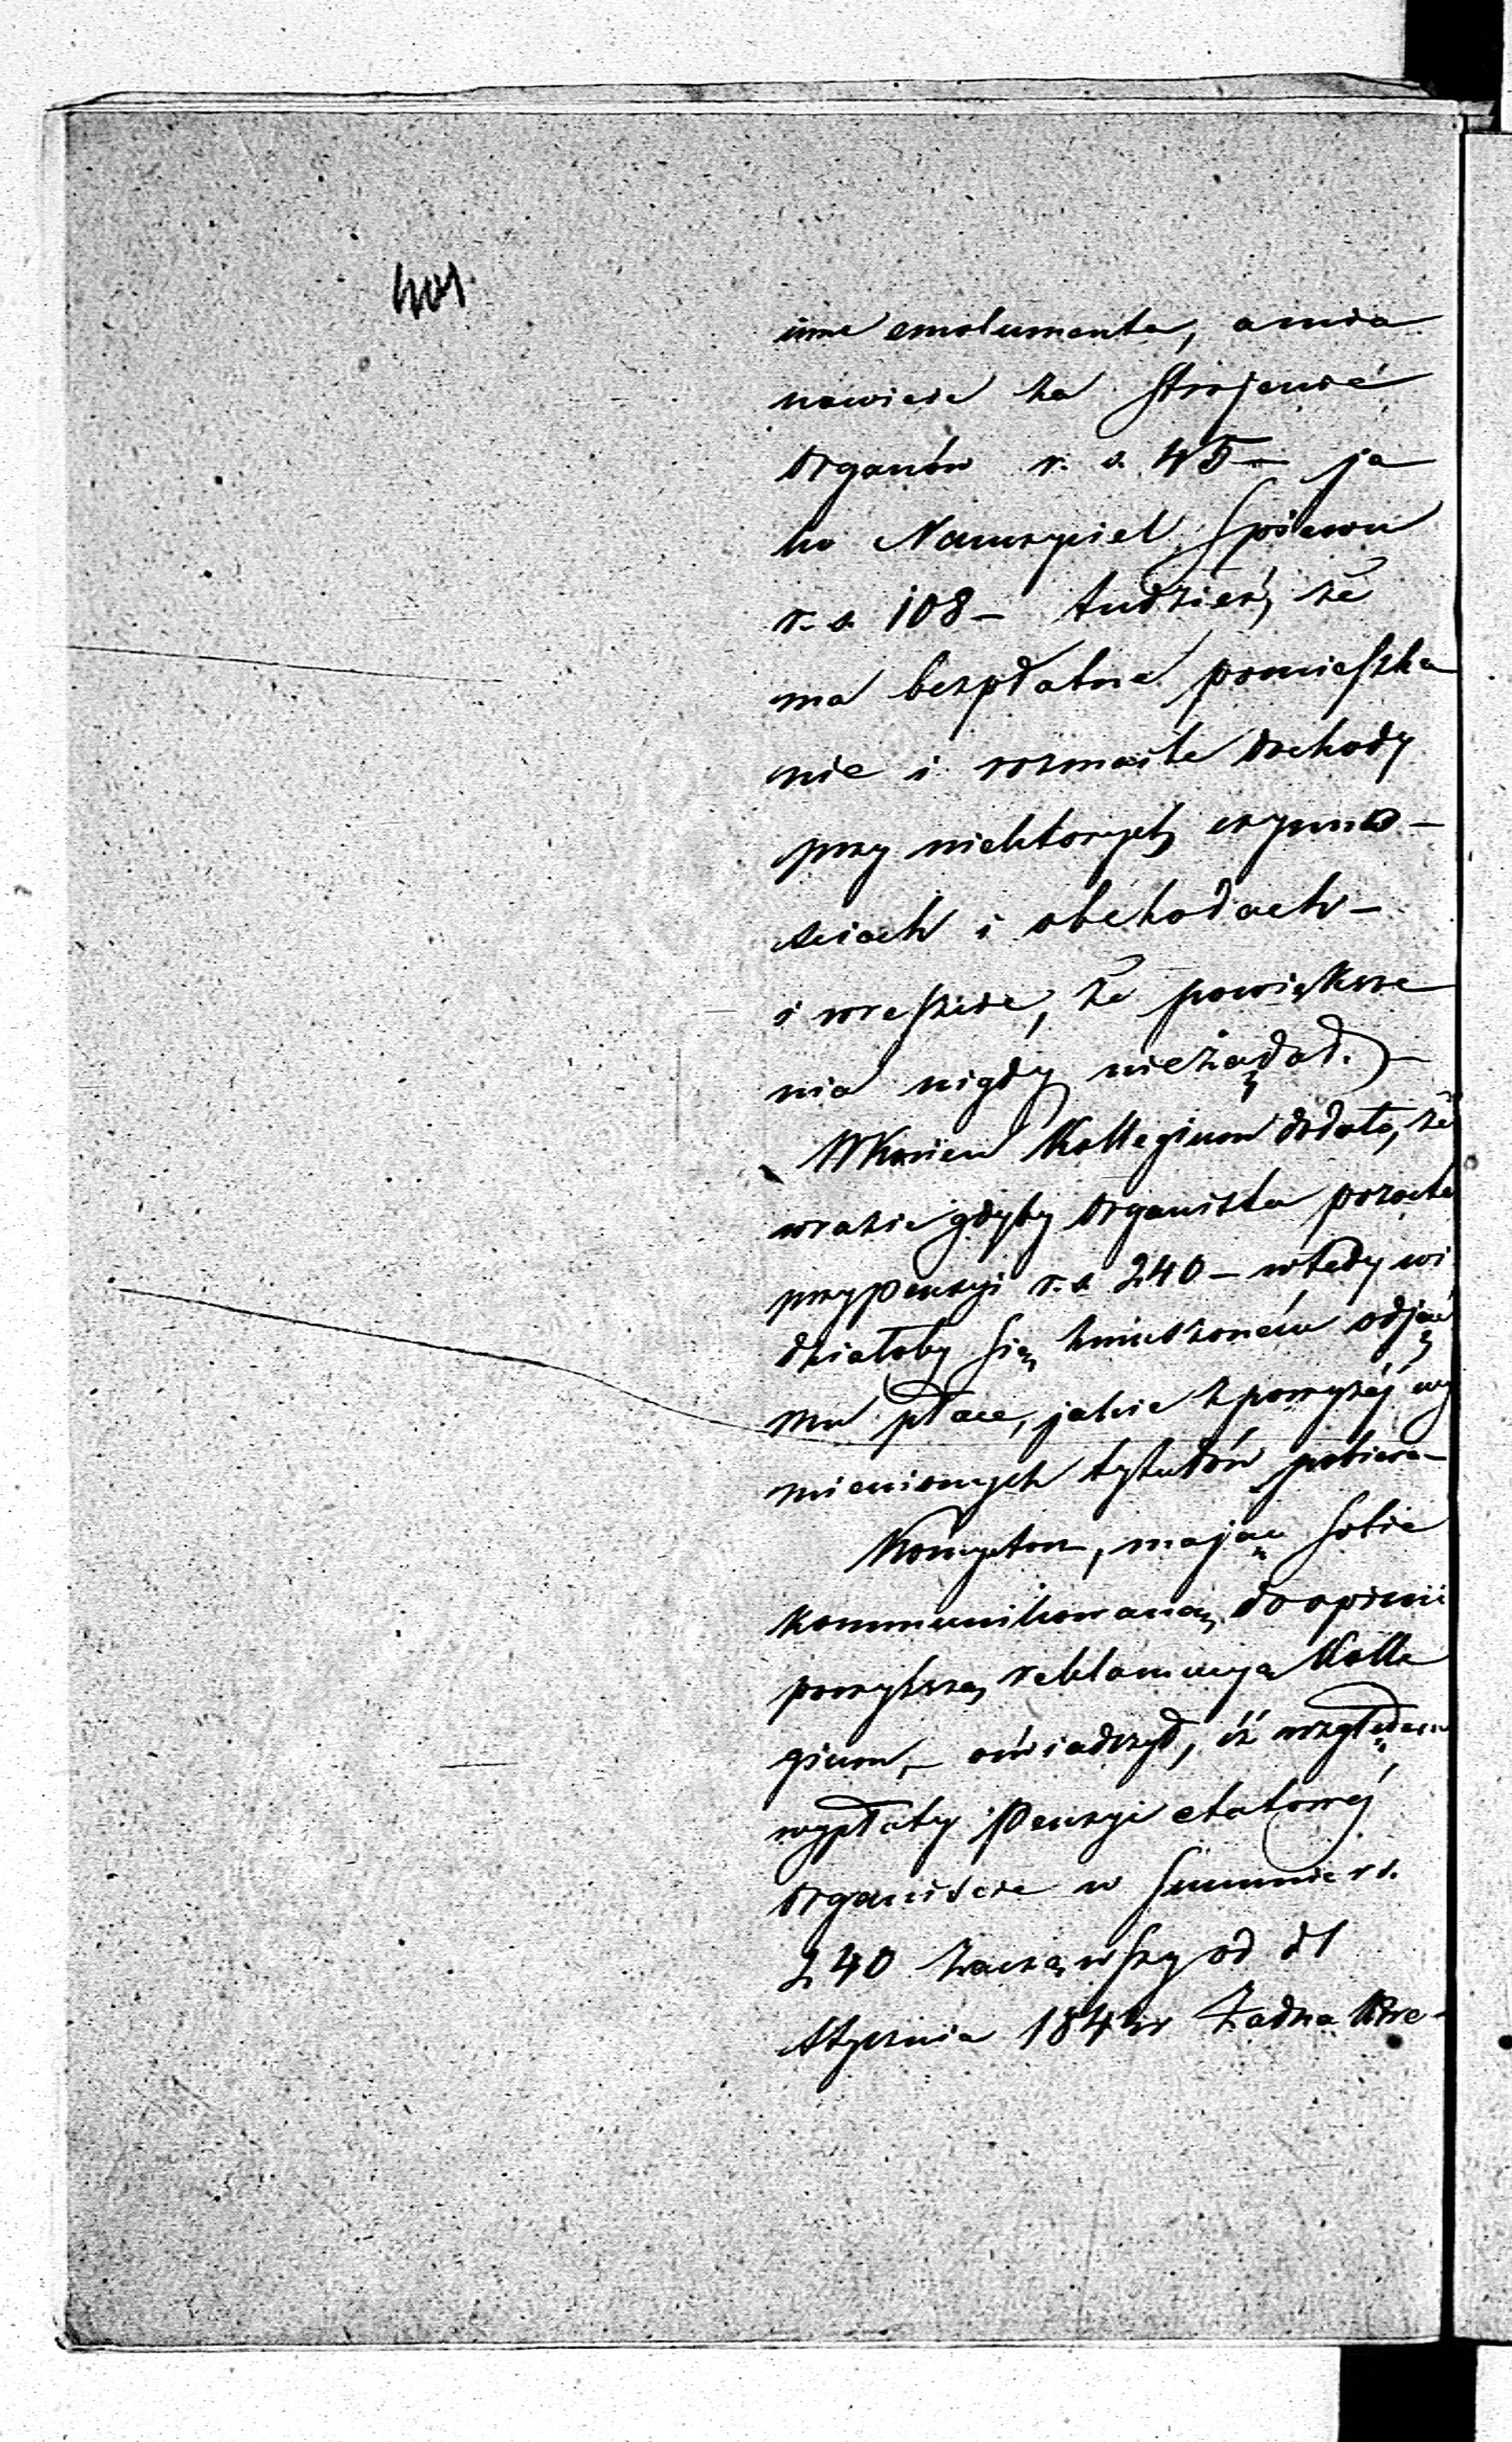 401.
inne emolumenta, a mia
nowicie za strojenie
Organów r. s. 45 – ja
ko Nauczyciel śpiewu
r. s. 108 – tudzież, że
ma bezpłatne pomieszka
nie i rozmaite dochody
przy niektorych czynno –
sciach i obchodach –
i wreszcie, że powiększe
nia nigdy nieżądał.) –
W Koncu Kollegium dodało, że
w razie gdyby Organista pozostał
przy Pensyi r. s. 240 – wtedy wi
działoby się zmuszonem odjąć
mu płace, jakie z powyżéj wy
mienionych tytułów pobiera –
Komitet, mając sobie
kommunikowaną do opinii
powyższą reklamacyą Kolle
gium, – oświadczył, iż względem
wypłaty Pensyi etatowéj
Organiscie w summie r s.
240 zacząwszy od d 1
Stycznia 184 r żadna kwe –